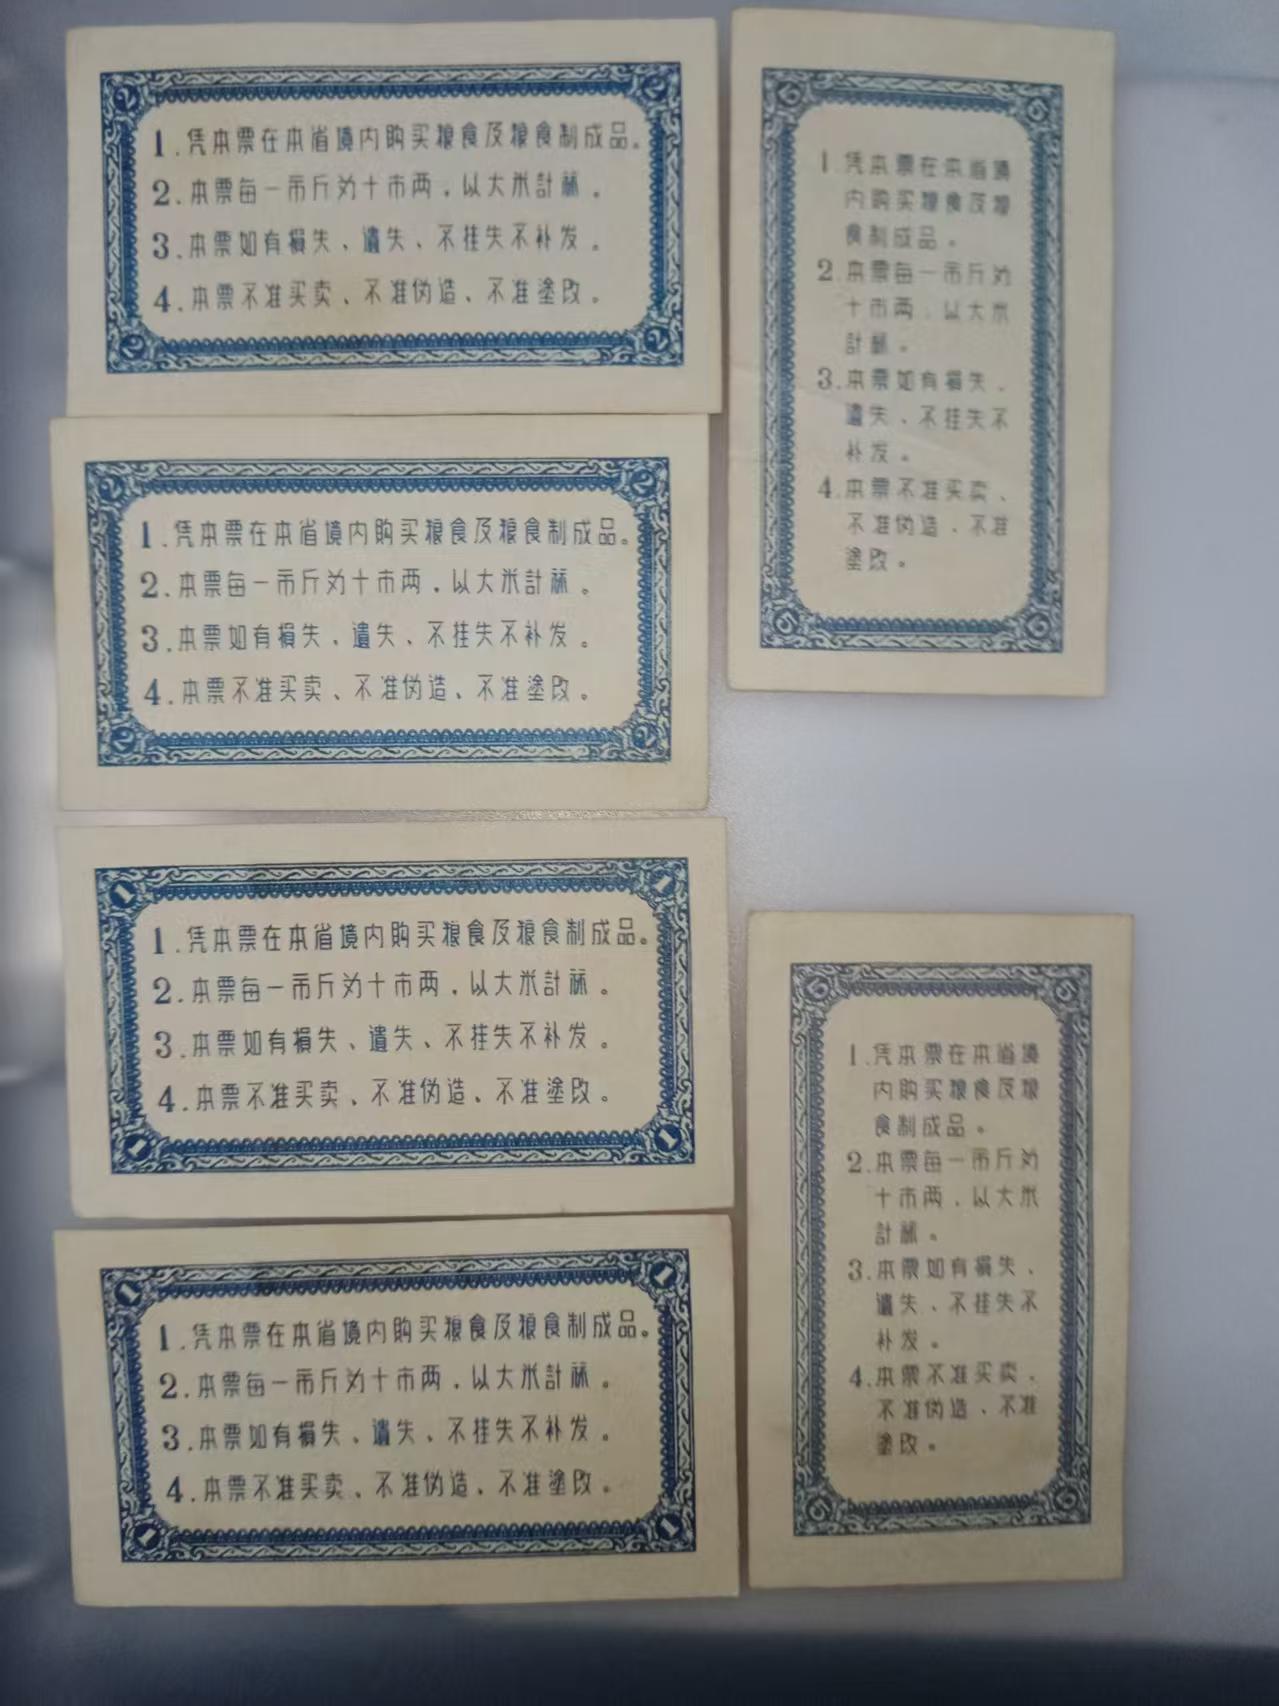 2 2
1.凭本票在本省境内购买粮食及粮食制成品。
2.本票每一市斤为十市两，以大米計祘。
3.本票如有損失、遺失、不挂失不补发。
4.本票不准买卖、不准伪造、不准塗改。
2 2
2 2
1.凭本票在本省境内购买粮食及粮食制成品。
2.本票每一市斤为十市两，以大米計祘。
3.本票如有損失、遺失、不挂失不补发。
4.本票不准买卖、不准伪造、不准塗改。
2 2
1 1
1.凭本票在本省境内购买粮食及粮食制成品。
2.本票每一市斤为十市两，以大米計祘。
3.本票如有損失、遺失、不挂失不补发。
4.本票不准买卖、不准伪造、不准塗改。
1 1
1 1
1.凭本票在本省境内购买粮食及粮食制成品。
2.本票每一市斤为十市两，以大米計祘。
3.本票如有損失、遺失、不挂失不补发。
4.本票不准买卖、不准伪造、不准塗改。
1 1
5 5
1.凭本票在本省境
内购买粮食及粮
食制成品。
2.本票每一市斤为
十市两，以大米
計祘。
3.本票如有損失、
遺失、不挂失不
补发。
4.本票不准买卖、
不准伪造、不准
塗改。
5 5
5 5
1.凭本票在本省境
内购买粮食及粮
食制成品。
2.本票每一市斤为
十市两，以大米
計祘。
3.本票如有損失、
遺失、不挂失不
补发。
4.本票不准买卖、
不准伪造、不准
塗改。
5 5